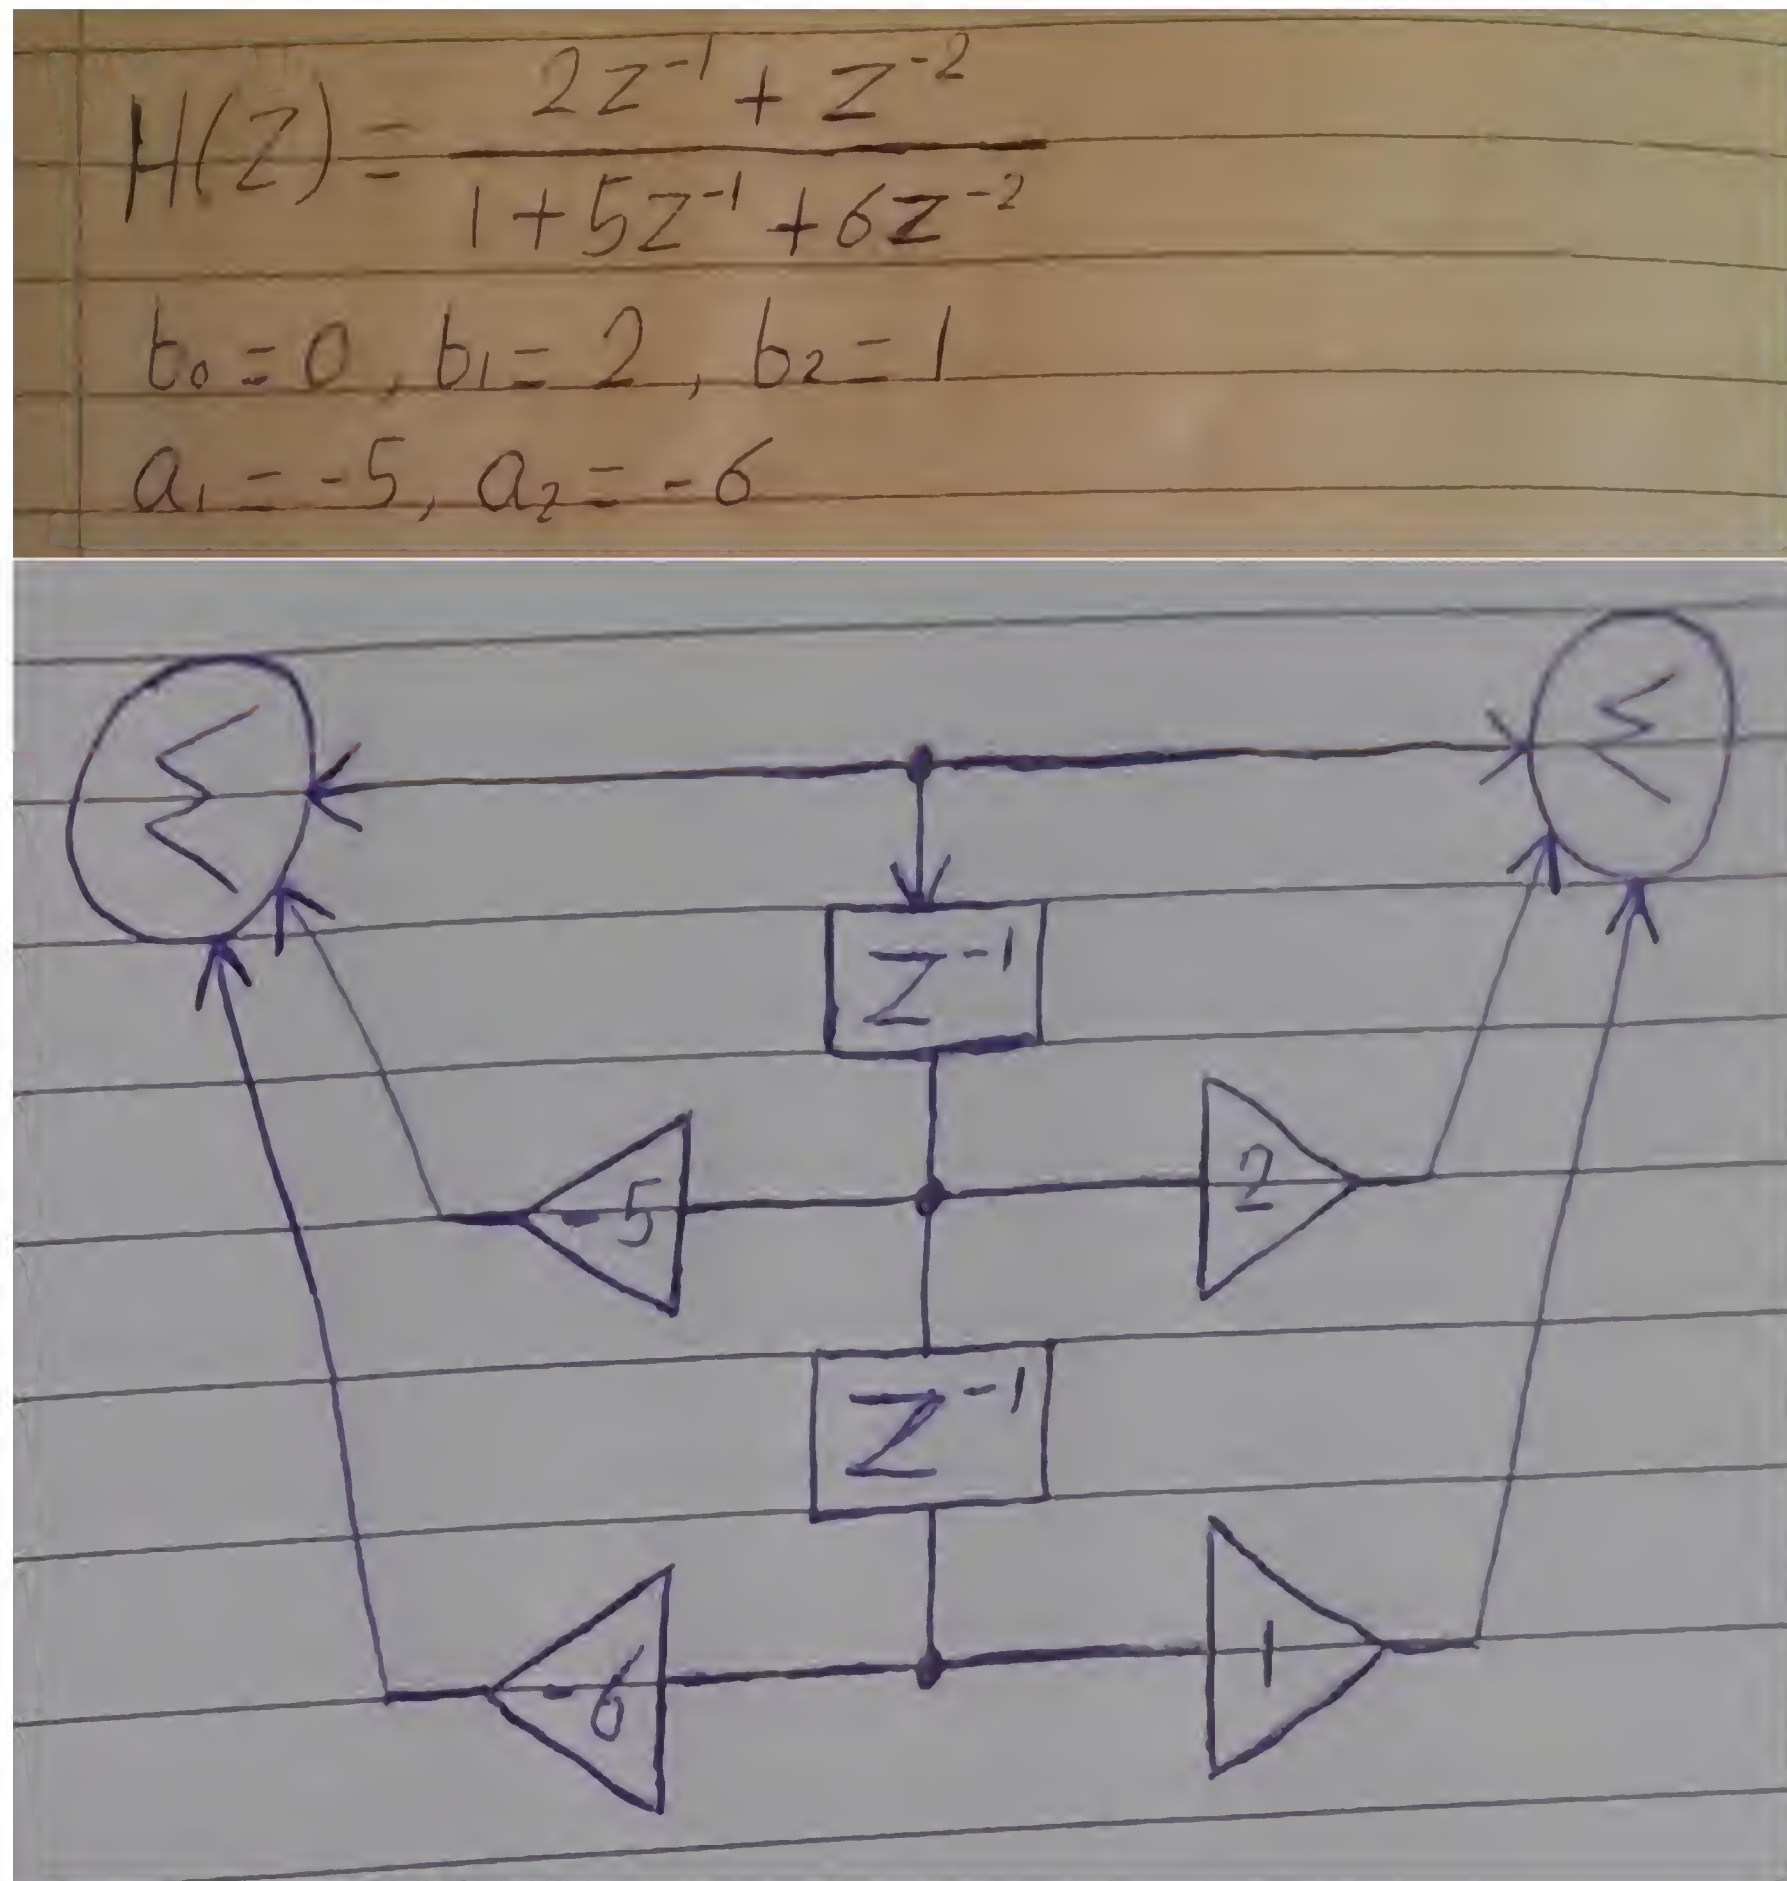 H(Z) = 2Z⁻¹ + Z⁻² / 1 + 5Z⁻¹ + 6Z⁻²
b₀ = 0, b₁ = 2, b₂ = 1
a₁ = -5, a₂ = -6
Σ Σ
Z⁻¹
-5 2
Z⁻¹
-6 1